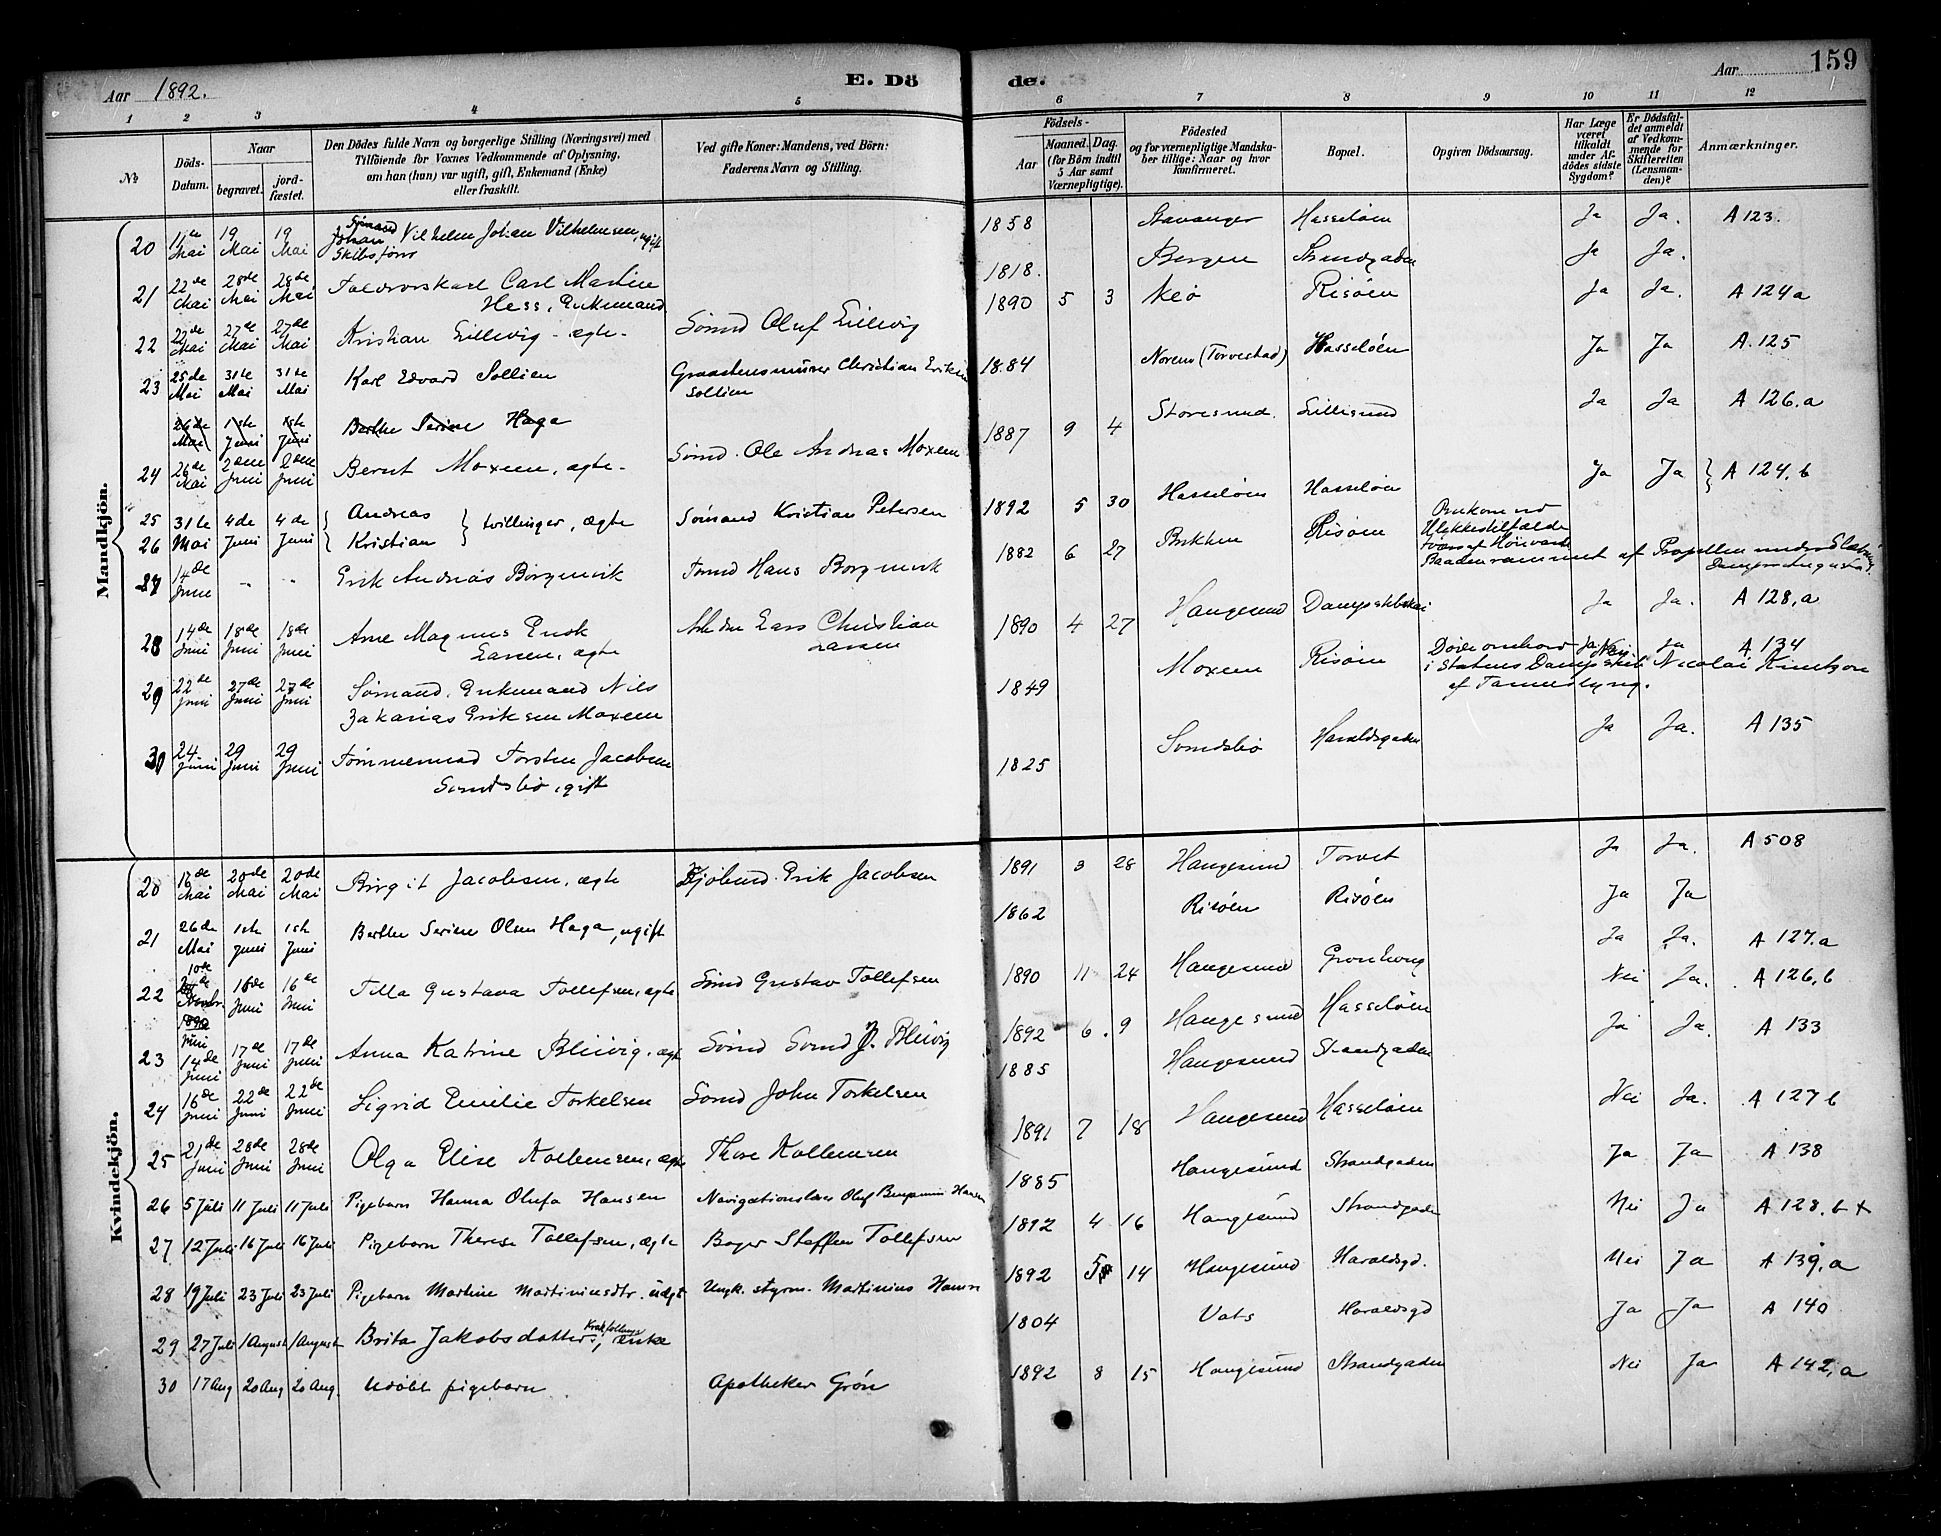 Aar 1892. E. Dö de. Aar 159
1 2 3 4 5 6 7 8 9 10 11 12
№
Döds-Datum.
Naar
begravet. jordfæstet.
Den Dödes fulde Navn og borgerlige Stilling (Næringsvei) med
Tilföiende for Voxnes Vedkommende af Oplysning,
om han (hun) var ugift, gift, Enkemand (Enke)
eller fraskilt.
Ved gifte Koner: Mandens, ved Börn:
Faderens Navn og Stilling.
Födsels-
Aar Maaned. Dag.
(for Börn indtil
5 Aar samt
Værnepligtige).
Födested
og for værnepligtige Mandskaber tillige: Naar og hvor
konfirmeret.
Bopæl.
Opgiven Dödsaarsag.
Har Læge
været
tilkaldt
under Afdödes sidste
Sygdom?
Er Dödsfaldet anmeldt
af Vedkommende for
Skifteretten
(Lensmanden)?
Anmærkninger.
Mandkjön.
20 Mai 19 Mai 19 Mai Sømand Johan Vilhelm Johan Vilhelmsen, ugift 1858 Stavanger Hasseløen Ja Ja. A 123.
21 22de Mai 28de Mai 28de Mai Carl Martin 1818. Bergen Strandgaden Ja Ja.
Hess, Enkemand
22 22de Mai 27de Mai 27de Mai Kristian Lillevig - ægte - Sømd Oluf Lillevig 1890 5 3 Risøen Ja Ja. A 124a
23 25de Mai 31te Mai 31te Mai Karl Edvard Sollien Christian 1884 (Torvestad) Hasseløen Ja Ja A.125
Sollien
26de Mai 1ste Juni 1ste Juni Berthe Serine Haga
24 26de Mai 2den Juni 2den Juni Bernt Moxeen, ægte - Sømd. Ole Andreas Moxeen 1887 9 4 Storesund. Lillesund Ja Ja A 126.a
25 31te 4de 4de Andreas } tvillinger, ægte Sømand Kristian Petersen 1892 5 30 Hasseløen Hasseløen Ja Ja } A 124.b
26 Mai Juni Juni Kristian
27 14de Juni " " Erik Andreas Borgenvik Hans Borgenvik 1882 6 27 Risøen Omkom ved
Ulykkestilfælde
af Propellen under
28 14de Juni 18de Juni 18de Juni Arne Magnus Lars Christian 1890 4 27 Haugesund Dampskibskai Ja Ja. A 128,a
Larsen, ægte Larsen
29 22de Juni 27de Juni 27de Juni Sømand, Enkemand Nils 1849 Moxeen Risøen Døde ombord Nei. Ja A 134
Zakarias Eriksen Moxeen i Statens Dampskib Nicolai Knutzon
30 24 Juni 29 Juni 29 Juni Tømmermand Torsten Jacobsen 1825 Haraldsgaden Ja Ja. A 135
gift
Kvindekjön.
20 Mai 20de Mai 20de Mai Birgit Jacobsen, ægte Kjøbmd. Erik Jacobsen 1891 3 28 Haugesund Torvet Ja Ja. A 508
21 26de Mai 1ste Juni 1ste Juni Berthe Serine Olsen Haga, ugift 1862 Risøen Risøen Ja Ja
22 10de Juni 16de Juni 16de Juni Tilla Gustava Tollefsen, ægte Sømd Gustav Tollefsen 1890 11 24 Haugesund Ja Ja. A 127.a
1890
23 14de Juni 17de Juni 17de Juni Anna Katrine Blikvig, ægte Sømd J. Blikvig 1892 6. 9 Haugesund Hasseløen Nei Ja. A 126,b
24 16de Juni 22de Juni 22de Juni Sigrid Emilie Torkelsen Sømd John Torkelsen 1885 Haugesund Strandgaden Ja Ja. A 133
25 21de Juni 28de Juni 28de Juni Olga Elise Kolbensen, ægte Thore Kolbensen 1891 7 18 Haugesund Hasseløen Nei Ja. A 127 b
26 5 Juli 11 Juli 11 Juli Pigebarn Hanna Olufa Hansen Navigationslærer Oluf Benjamin Hansen 1885 Haugesund Strandgaden Ja Ja A 138
27 12 Juli 16 Juli 16 Juli Pigebarn Therese Tollefsen, ægte Bager Steffen Tollefsen 1892 4 16 Haugesund Strandgaden Nei Ja A 128.b +
28 19 Juli 23 Juli 23 Juli Pigebarn Martine Martiniusdtr. uægt Ungk. styrm. Martinius Hansen 1892 5 14 Haugesund Haraldsgd. Nei Ja A 139,a
29 27 Juli 1 August 1 August Brita Jakobsdatter, enke 1804 Vats Haraldsgd Ja Ja A 140
30 17 Aug 20 Aug 20 Aug. Udøbt pigebarn Apotheker Grøn 1892 8 15 Haugesund Strandgaden Nei Ja A 142,a